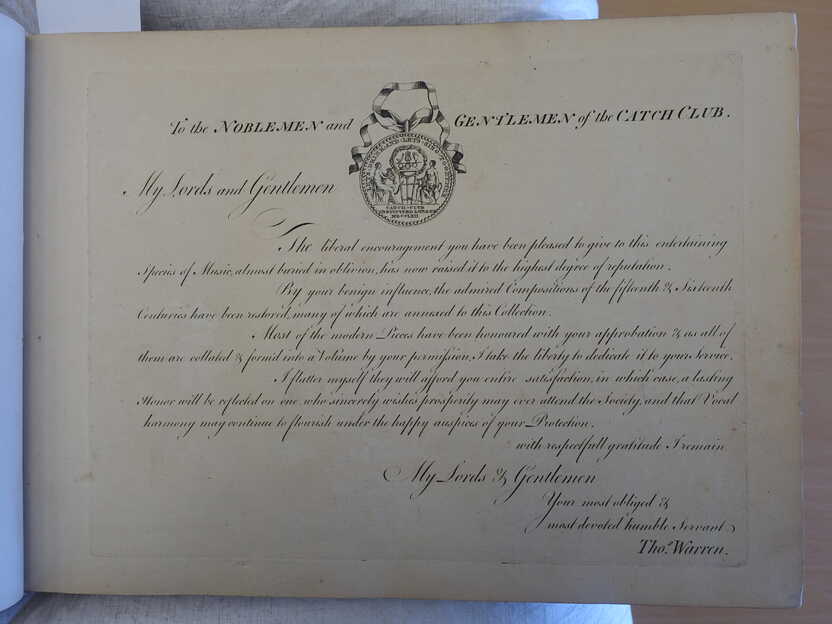 To the NOBLEMEN and GENTLEMEN of the CATCH CLUB.
LETS DRINK AND LETS SING TOGETHER
CATCH CLUB
INSTITUTED LONDON
MDCCLXII
My Lords and Gentlemen
The liberal encouragement you have been pleased to give to this entertaining
Species of Music, almost buried in oblivion, has now raised it to the highest degree of reputation.
By your benign influence, the admired Compositions of the fifteenth & Sixteenth
Centuries have been restored, many of which are annexed to this Collection.
Most of the modern Pieces have been honoured with your approbation & as all of
them are collated & form'd into a Volume by your permission, I take the liberty to dedicate it to your Service.
I flatter myself they will afford you entire satisfaction, in which case, a lasting
Honor will be reflected on one, who sincerely wishes prosperity may ever attend the Society, and that Vocal
harmony may continue to flourish under the happy auspices of your Protection.
with respectfull gratitude I remain
My Lords & Gentlemen
Your most obliged &
most devoted humble Servant
Thos. Warren.